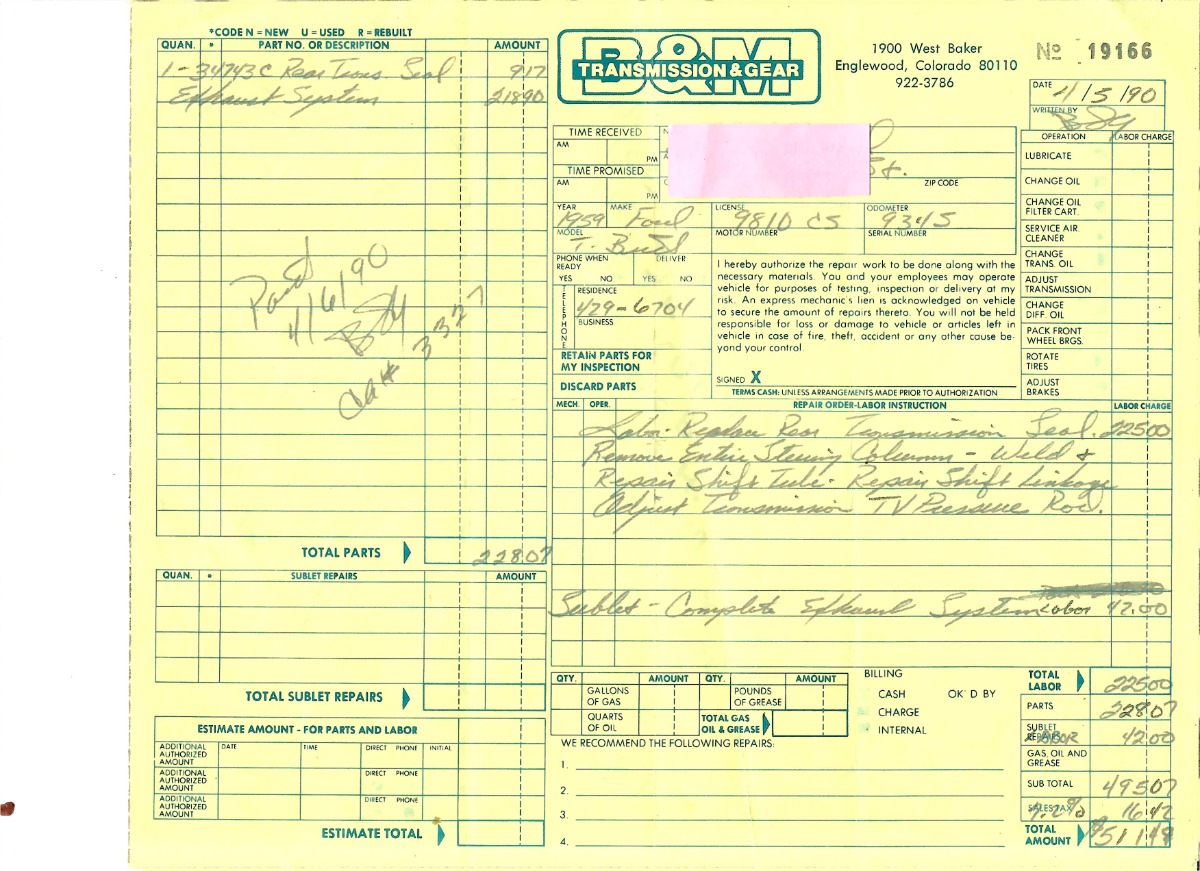 *CODE N = NEW U = USED R = REBUILT
QUAN. * PART NO. OR DESCRIPTION AMOUNT
1 - 34743C Rear Trans. Seal 917
Exhaust System 21890
Paid
4/6/90
Ck# 3327
TOTAL PARTS 228.07
QUAN. * SUBLET REPAIRS AMOUNT
TOTAL SUBLET REPAIRS
ESTIMATE AMOUNT - FOR PARTS AND LABOR
ADDITIONAL AUTHORIZED AMOUNT DATE TIME DIRECT PHONE INITIAL
ADDITIONAL AUTHORIZED AMOUNT DIRECT PHONE
ADDITIONAL AUTHORIZED AMOUNT DIRECT PHONE
ESTIMATE TOTAL
B&M
TRANSMISSION & GEAR
1900 West Baker
Englewood, Colorado 80110
922-3786
No 19166
DATE 4/5/90
WRITTEN BY
TIME RECEIVED
AM PM
TIME PROMISED
AM PM
St.
ZIP CODE
YEAR MAKE LICENSE ODOMETER
1959 Ford 9810 CS 9345
MODEL MOTOR NUMBER SERIAL NUMBER
T. Bird
PHONE WHEN READY DELIVER
YES NO YES NO
TELEPHONE
RESIDENCE
429-6704
BUSINESS
RETAIN PARTS FOR MY INSPECTION
DISCARD PARTS
I hereby authorize the repair work to be done along with the
necessary materials. You and your employees may operate
vehicle for purposes of testing, inspection or delivery at my
risk. An express mechanic's lien is acknowledged on vehicle
to secure the amount of repairs thereto. You will not be held
responsible for loss or damage to vehicle or articles left in
vehicle in case of fire, theft, accident or any other cause be-
yond your control.
SIGNED X
TERMS CASH: UNLESS ARRANGEMENTS MADE PRIOR TO AUTHORIZATION
OPERATION LABOR CHARGE
LUBRICATE
CHANGE OIL
CHANGE OIL FILTER CART.
SERVICE AIR CLEANER
CHANGE TRANS. OIL
ADJUST TRANSMISSION
CHANGE DIFF. OIL
PACK FRONT WHEEL BRGS.
ROTATE TIRES
ADJUST BRAKES
MECH. OPER. REPAIR ORDER-LABOR INSTRUCTION LABOR CHARGE
Labor- Replace Rear Transmission Seal. 22500
Remove Entire Steering Column - Weld &
Repair Shift Tube- Repair Shift Linkage
Adjust Transmission TV Pressure Rod.
Sublet - Complete Exhaust System Labor 42.00
QTY. AMOUNT QTY. AMOUNT
GALLONS OF GAS POUNDS OF GREASE
QUARTS OF OIL TOTAL GAS OIL & GREASE
BILLING
CASH OK'D BY
CHARGE
INTERNAL
WE RECOMMEND THE FOLLOWING REPAIRS:
1.
2.
3.
4.
TOTAL LABOR 22500
PARTS 22807
SUBLET REPAIRS LABOR 42.00
GAS, OIL AND GREASE
SUB TOTAL 49507
SALES TAX 7.2% 16.42
TOTAL AMOUNT $51149